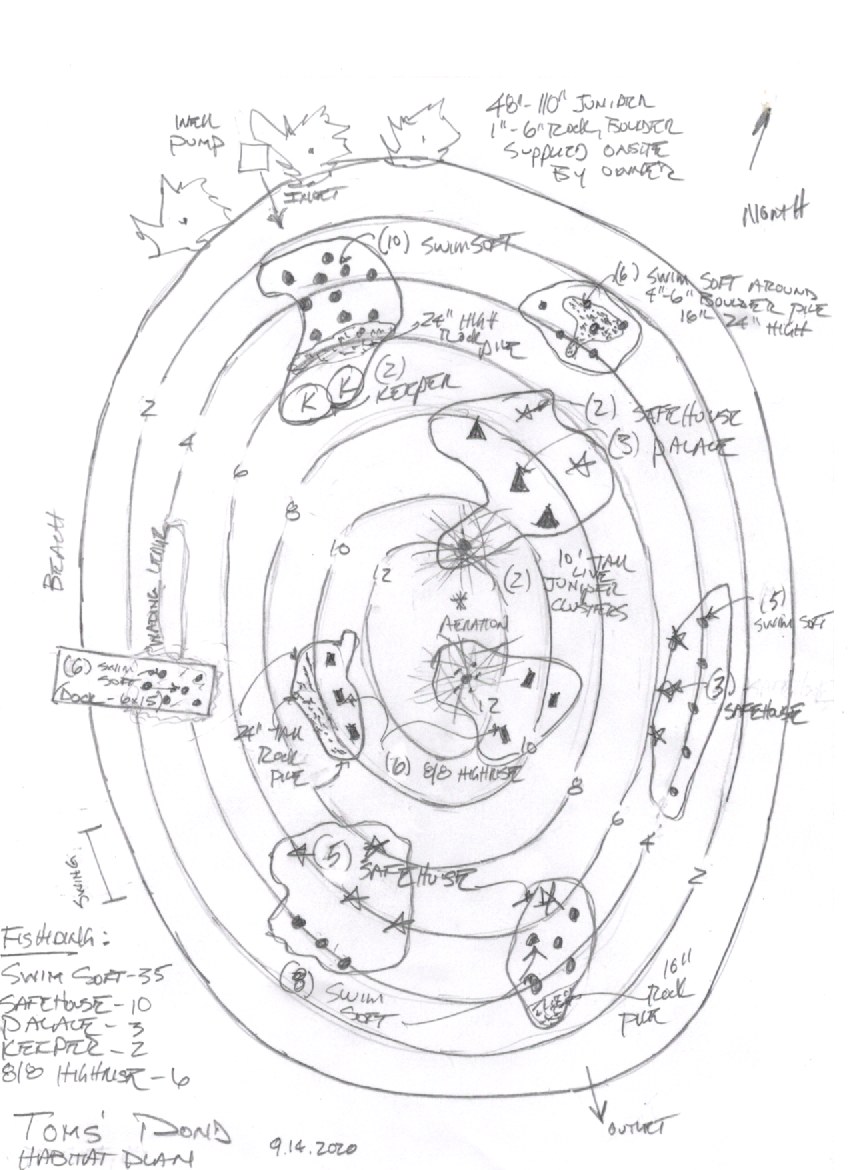 48"-110" JUNIPER
1"-6" ROCK, BOULDER
SUPPLIED ONSITE
BY OWNER
WELL
PUMP
INLET
NORTH
(10) SWIMSOFT
(6) SWIM SOFT AROUND
4"-6" BOULDER PILE
16"- 24" HIGH
24" HIGH
ROCK
PILE
(2)
KEEPER
K K
(2) SAFEHOUSE
(3) PALACE
2
4
6
8
10
12
BEACH
WADING
10' TALL
LIVE
JUNIPER
CLUSTERS
(2)
AERATION
(5)
SWIM SOFT
(3)
SAFEHOUSE
(6) SWIM
SOFT
DOCK - 6x15
24" TALL
ROCK
PILE
12
10
(6) 8/8 HIGHRISE
8
6
4
2
SWING
(5) SAFEHOUSE
(8) SWIM
SOFT
16"
ROCK
PILE
FISHIDING:
SWIM SOFT-35
SAFEHOUSE-10
PALACE-3
KEEPER-2
8/8 HIGHRISE-6
OUTLET
TOMS' POND
HABITAT PLAN
9.14.2020